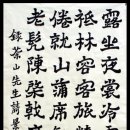 露坐夜
祇林容客旅
倦就山蒲席
老髡陳棨戟
錄葉山先生詩